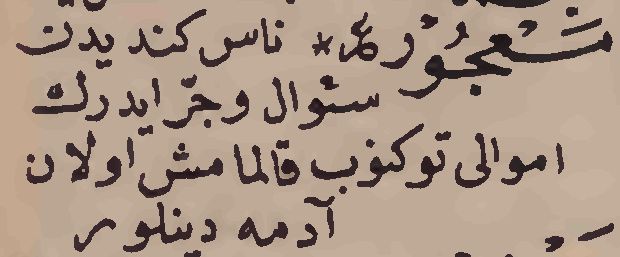 مَعْجُور * ناس كنديدن
سئوال و جرّ ايدرك
اموالى توكنوب قالمامش اولان
آدمه دينلور